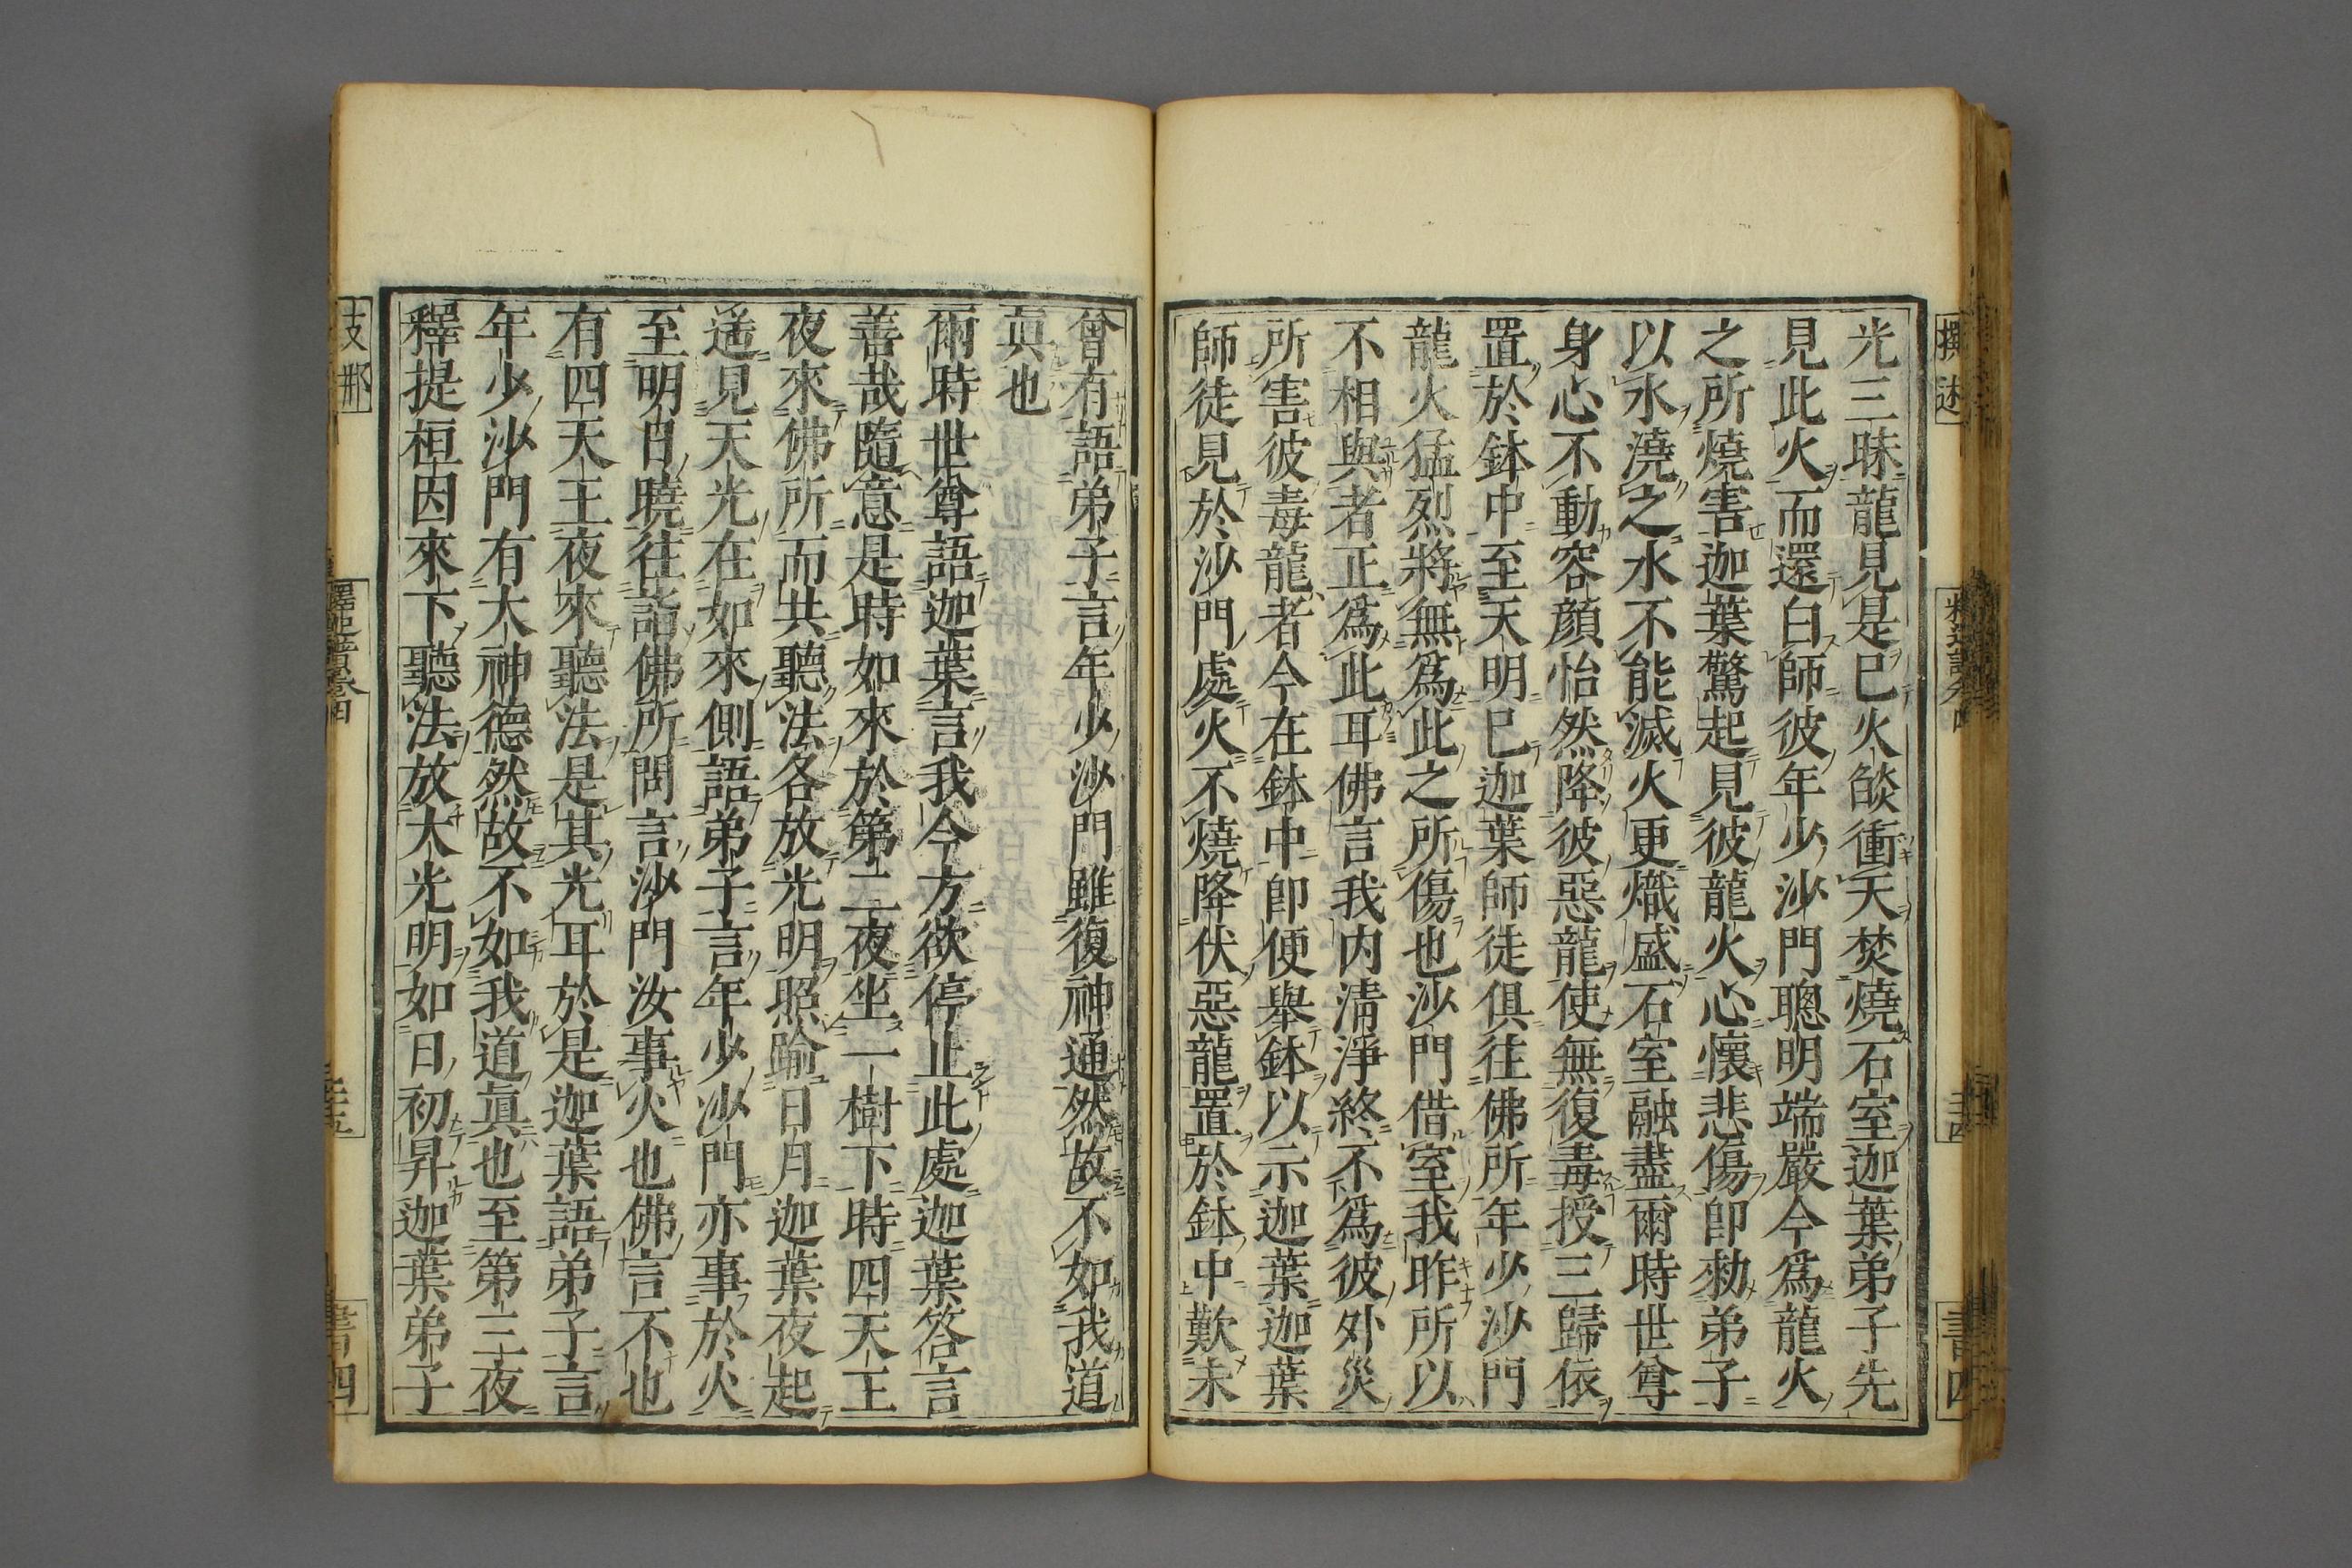 光三昧龍見是已火燄衝天焚燒石室迦葉弟子先
見此火而還白師彼年少沙門聰明端嚴今爲龍火
之所燒害迦葉驚起見彼龍火心懷悲傷卽勑弟子
以水澆之水不能滅火更熾盛石室融盡爾時世尊
身心不動容顏怡然降彼惡龍使無復毒授三歸依
置於鉢中至天明已迦葉師徒俱往佛所年少沙門
龍火猛烈將無爲此之所傷也沙門借室我昨所以
不相與者正爲此耳佛言我内淸淨終不爲彼外災
所害彼毒龍者今在鉢中卽便舉鉢以示迦葉迦葉
師徒見於沙門處火不燒降伏惡龍置於鉢中歎未
曾有語弟子言年少沙門雖復神通然故不如我道
眞也
爾時世尊語迦葉言我今方欲停止此處迦葉答言
善哉隨意是時如來於第二夜坐一樹下時四天王
夜來佛所而共聽法各放光明照踰日月迦葉夜起
遙見天光在如來側語弟子言年少沙門亦事於火
至明日曉往詣佛所問言沙門汝事火也佛言不也
有四天王夜來聽法是其光耳於是迦葉語弟子言
年少沙門有大神德然故不如我道眞也至第三夜
釋提桓因來下聽法放大光明如日初昇迦葉弟子